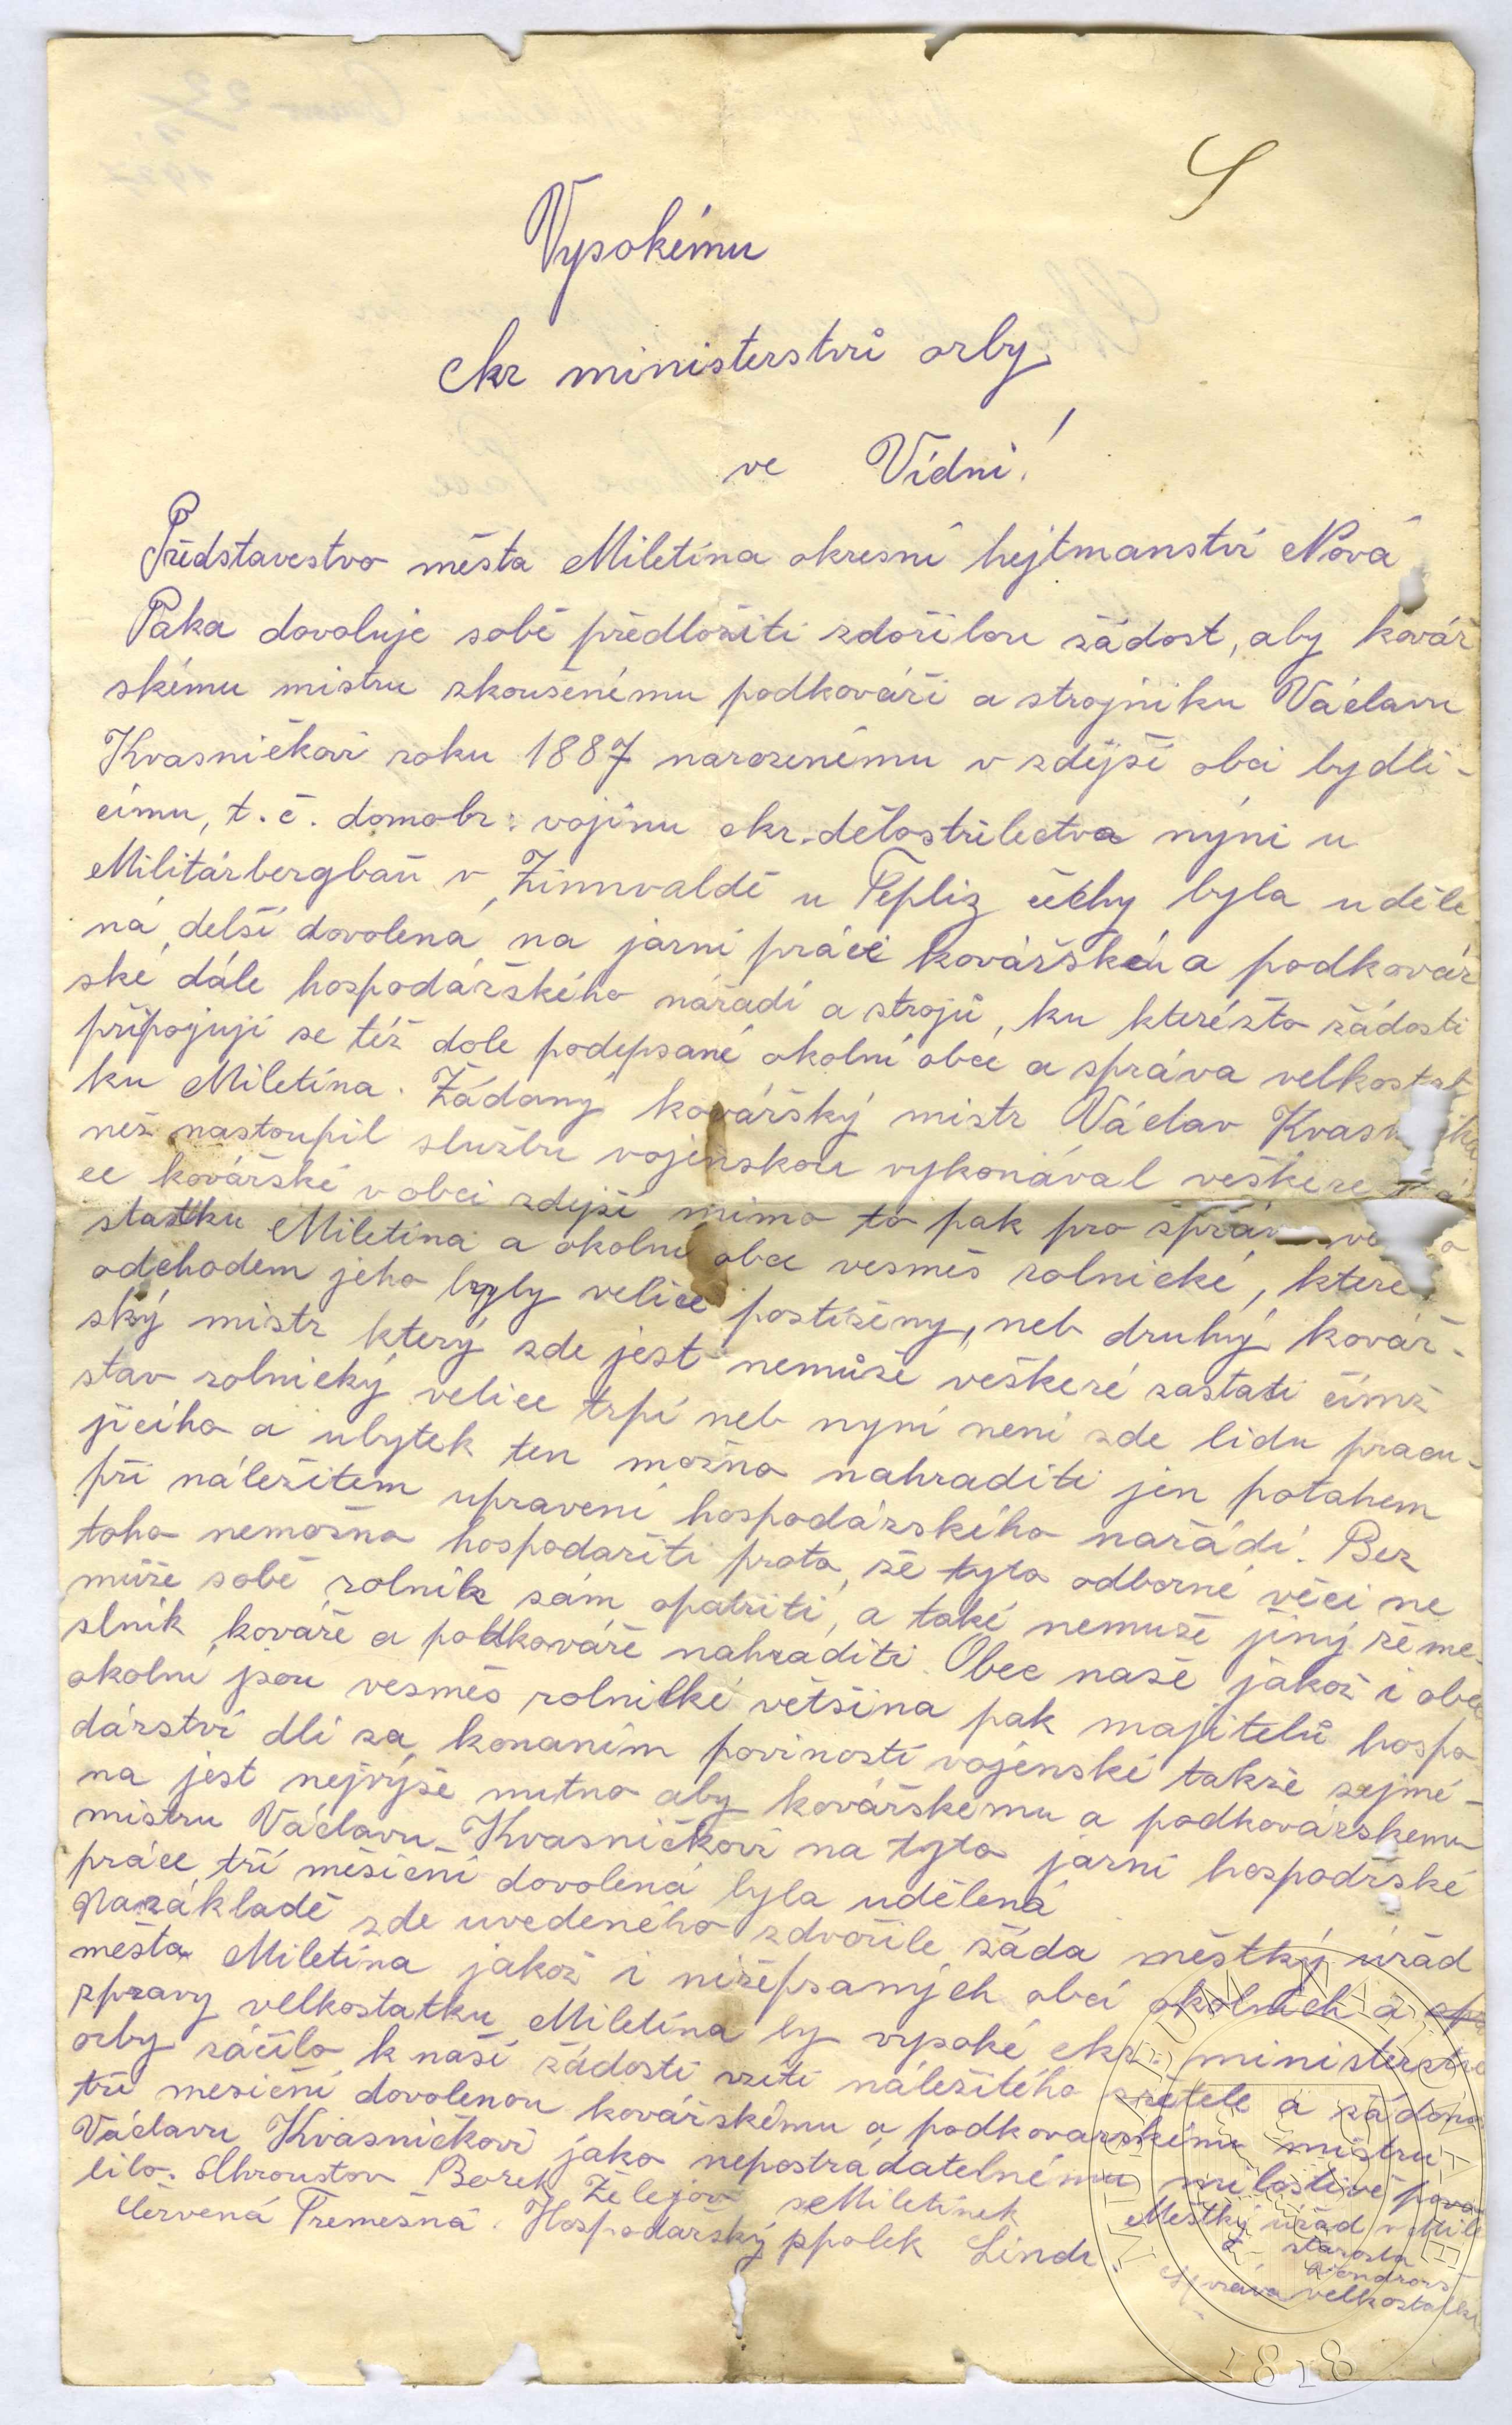 S
Vysokému
ckr ministerstvů orby
ve Vídni!
Představestvo města Miletína okresní hejtmanství Nová
Paka dovoluje sobě předložiti zdořilou žádost, aby kovář
skému mistru zkoušenému podkováři a strojníku Václavu
Kvasničkovi roku 1887 narozenému v zdější obci bydlí-
címu, t. č. domobr. vojínu ckr. dělostřelectva nyní u
Militärbergbau v Zinnvaldě u Tepliz čechy byla uděle
ná delší dovolená na jarní práce kovářské a podkovář
ské dále hospodářského nářadí a strojů, ku kteréžto žádosti
připojují se též dole podepsané okolní obce a správa velkostat
ku Miletína. Žádaný kovářský mistr Václav
než nastoupil službu vojenskou vykonával veškeré
ce kovářské v obci zdejší mimo to pak pro
statku Miletína a okolní obce vesměs rolnické, které
odchodem jeho byly velice postiženy, neb druhý kovář-
ský mistr který zde jest nemůže veškeré zastati čímž
stav rolnický velice trpí neb nyní není zde lidu pracu-
jícího a ubytek ten možno nahraditi jen potahem
při náležitem upravení hospodářského nářadí. Bez
toho nemožno hospodařiti proto, že tyto odborné věci ne
může sobě rolník sám opatřiti, a také nemuže jiný řeme-
slník kováře a podkováře nahraditi. Obec naše jakož i obce
okolní jsou vesměs rolnické většina pak majitelů hospo
dářství dlí za konaním povinosti vojenské takže zejmé-
na jest nejvýše nutno aby kovářskému a podkovářskemu
mistru Václavu Kvasničkovi na tyto jarní hospodřské
práce tří měsíční dovolená byla udělená
Na základě zde uvedeného zdvořile žáda městký úřad
města Miletína jakož i nížepsaných obcí okolních a
zpravy velkostatku Miletína by vysoké ckr. ministerstvo
orby ráčilo k naší žádosti vzíti náležitého zřetele a žádanou
tří mesiční dovolenou kovářskému a podkovarskému mistru
Václavu Kvasničkovi jako nepostrádatelnému milostivě povo
lilo. Chroustov Borek Želejov Miletínek
Městký úřad v Mile
Červená Třemešná. Hospodařský spolek Lindr
starosta
Správa velkostatku
MUSEUM NATIONALE
1818